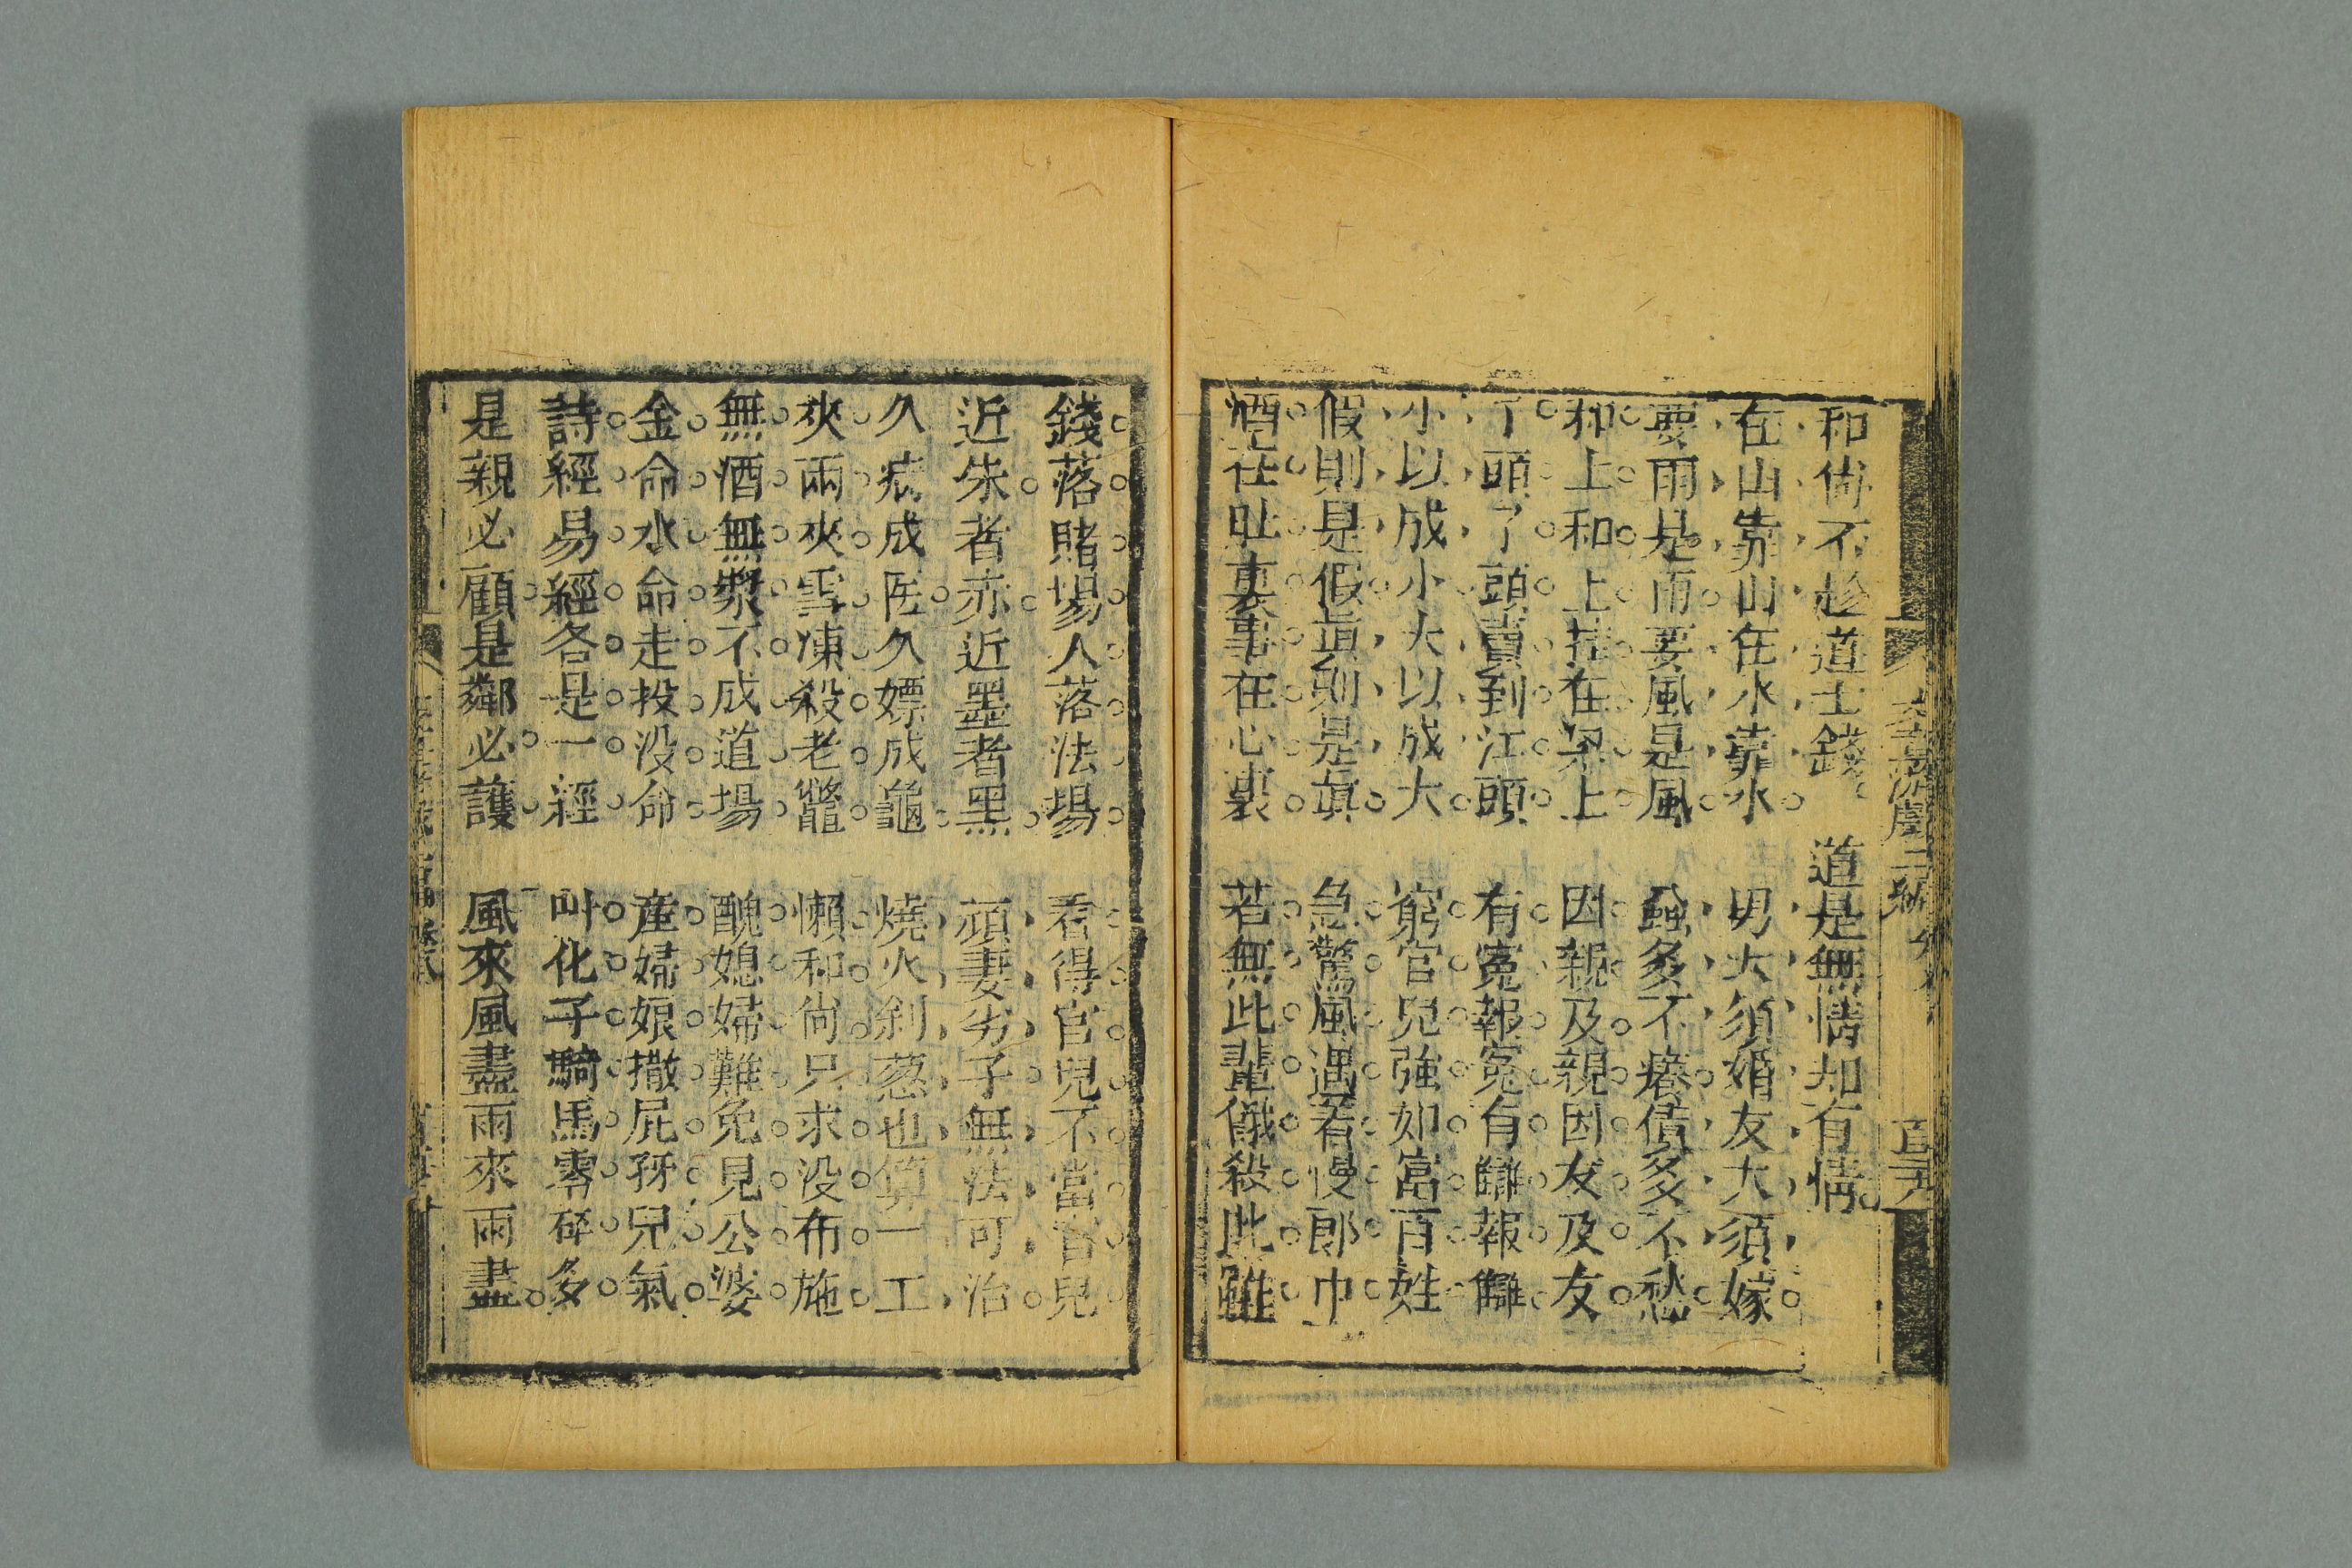 和尚不趁道士錢。　道是無情却有情。
在山靠山在水靠水　男大須婚友大須嫁
要雨是雨要風是風　蝨多不癢債多不愁
和上和上挂在梁上　因親及親因友及友
丫頭了頭賣到江頭　有寃報寃有讎報讎
小以成小大以成大　窮官兒強如富百姓
假則是假眞則是眞　急驚風遇着慢郎中
酒在肚裏事在心裏　若無此輩餓殺此雖
錢落賭場人落法場　看得官兒不當官兒
近朱者赤近墨者黑　頑妻劣子無法可治
久病成医久嫖成龜　燒火剝葱也算一工
夾雨夾雪凍殺老鼈　懶和尙只求没布施
無酒無漿不成道場　醜媳婦難免見公婆
金命水命走投没命　產婦娘撒屁孩兒氣
詩經易經各是一經　叫化子騎馬零碎多
是親必顧是鄰必護　風來風盡雨來雨盡